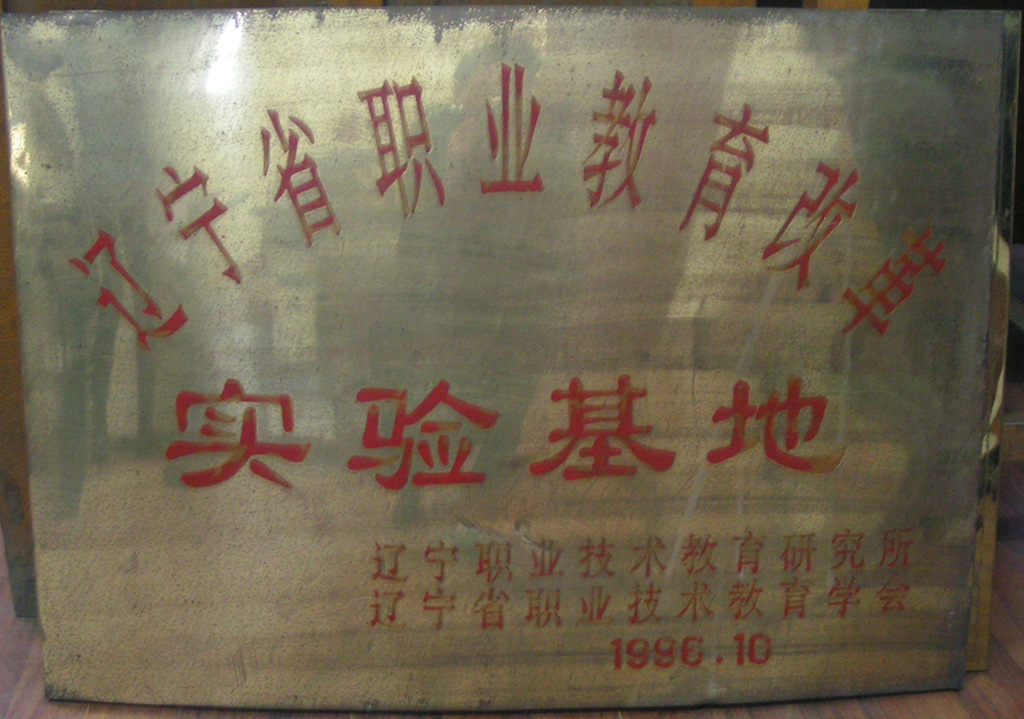 辽宁省职业教育改革
实验基地
辽宁职业技术教育研究所
辽宁省职业技术教育学会
1996.10